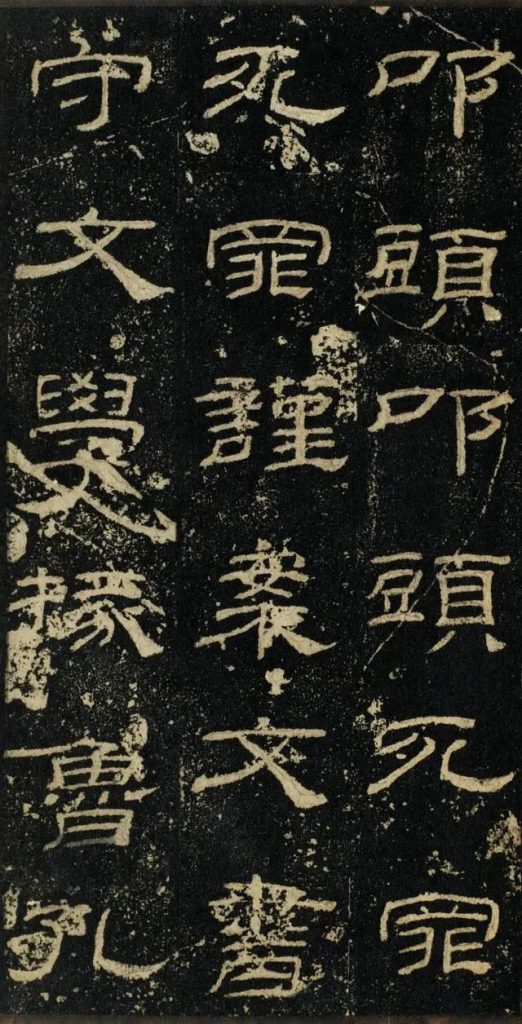 叩頭叩頭死罪
死罪謹案文書
守文學掾魯孔